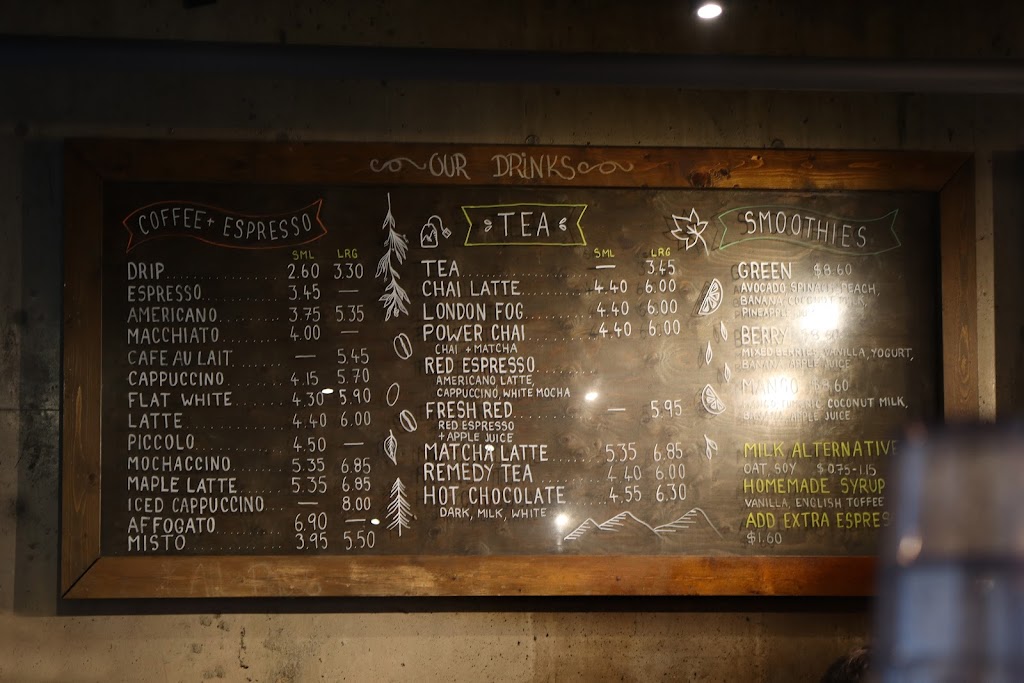 OUR DRINKS
COFFEE + ESPRESSO
SML LRG
DRIP 2.60 3.30
ESPRESSO 3.45 —
AMERICANO 3.75 5.35
MACCHIATO 4.00 —
CAFE AU LAIT — 5.45
CAPPUCCINO 4.15 5.70
FLAT WHITE 4.30 5.90
LATTE 4.40 6.00
PICCOLO 4.50 —
MOCHACCINO 5.35 6.85
MAPLE LATTE 5.35 6.85
ICED CAPPUCCINO — 8.00
AFFOGATO 6.90 —
MISTO 3.95 5.50
TEA
SML LRG
TEA — 3.45
CHAI LATTE 4.40 6.00
LONDON FOG 4.40 6.00
POWER CHAI 4.40 6.00
CHAI + MATCHA
RED ESPRESSO
AMERICANO LATTE,
CAPPUCCINO, WHITE MOCHA
FRESH RED — 5.95
RED ESPRESSO
+ APPLE JUICE
MATCHA LATTE 5.35 6.85
REMEDY TEA 4.40 6.00
HOT CHOCOLATE 4.55 6.30
DARK, MILK, WHITE
SMOOTHIES
GREEN $8.60
AVOCADO SPINACH, PEACH,
BANANA COCONUT MILK,
PINEAPPLE
BERRY
MIXED BERRIES, VANILLA, YOGURT,
BANANA APPLE JUICE
MANGO
COCONUT MILK,
APPLE JUICE
MILK ALTERNATIVE
OAT SOY $0.75-1.15
HOMEMADE SYRUP
VANILLA, ENGLISH TOFFEE
ADD EXTRA ESPRES
$1.60